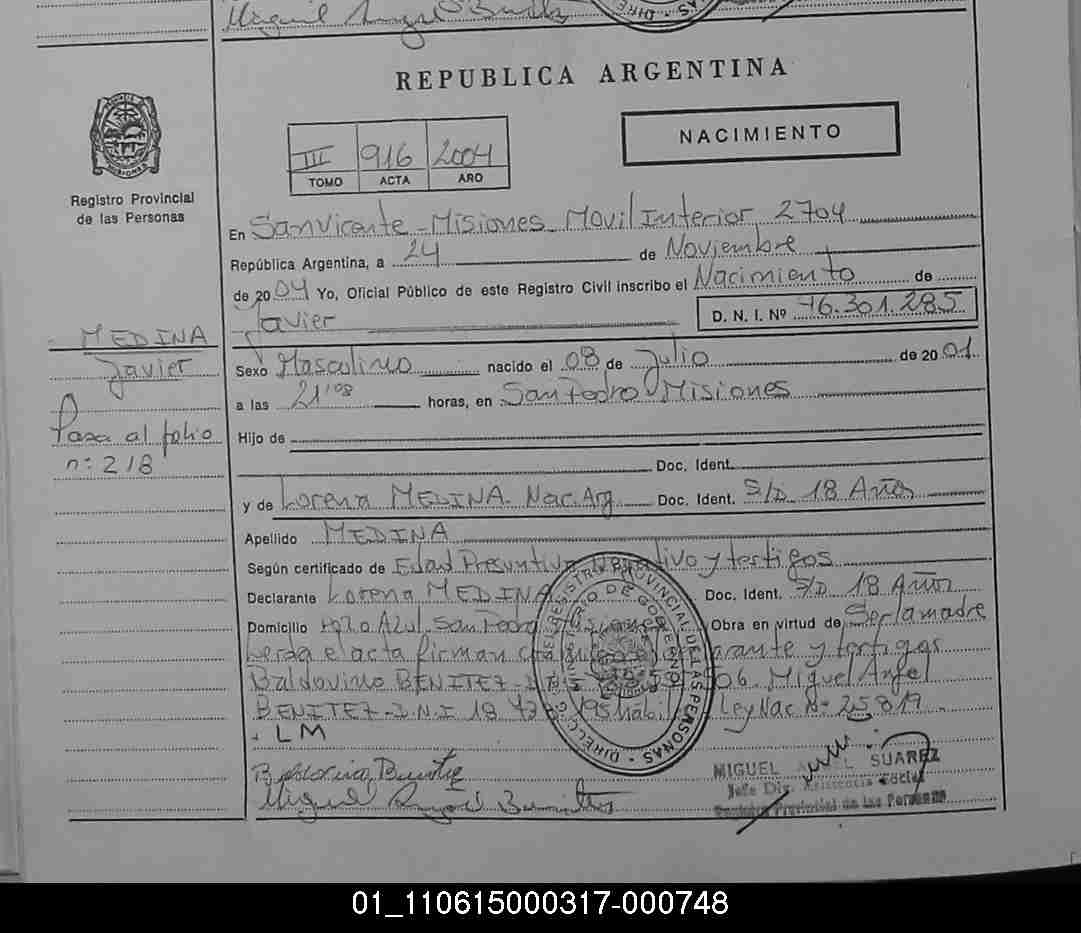 Miguel
REPUBLICA ARGENTINA
NACIMIENTO
III 916 2004
TOMO ACTA AÑO
Registro Provincial
de las Personas
En San Vicente - Misiones Movil Interior 2704
República Argentina, a 24 de Noviembre
de 2004 Yo, Oficial Público de este Registro Civil inscribo el Nacimiento de
Javier D. N. I. Nº 46.301.285
MEDINA
Javier
Pasa al folio
nº 218
Sexo Masculino nacido el 08 de Julio de 2001
a las 21'08 horas, en San Pedro - Misiones
Hijo de
Doc. Ident.
y de Lorena MEDINA. Nac. Arg. Doc. Ident. S/D 18 Años
Apellido MEDINA
Según certificado de Edad Presuntiva y testigos
Declarante Lorena MEDINA Doc. Ident. S/D 18 Años
Domicilio Pozo Azul. San Pedro Obra en virtud de Ser la madre
el acta firman y testigos
Baldovino BENITEZ - 06. Miguel Angel
BENITEZ - D.N.I 18 Ley Nac Nº 25.819.
LM
DIRECC REGISTRO PROVINCIAL DE LAS PERSONAS
MINISTERIO DE GOBIERNO
Miguel
MIGUEL SUAREZ
Jefe Div. Asistencia Social
Registro Provincial de las Personas
01_110615000317-000748